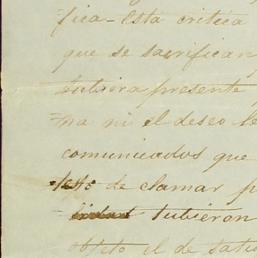 fica- Esta critica
que se sacrifican
tubiera presente
ma ni el deseo le
comunicados que
de clamar p
tubieron
objeto el de satis